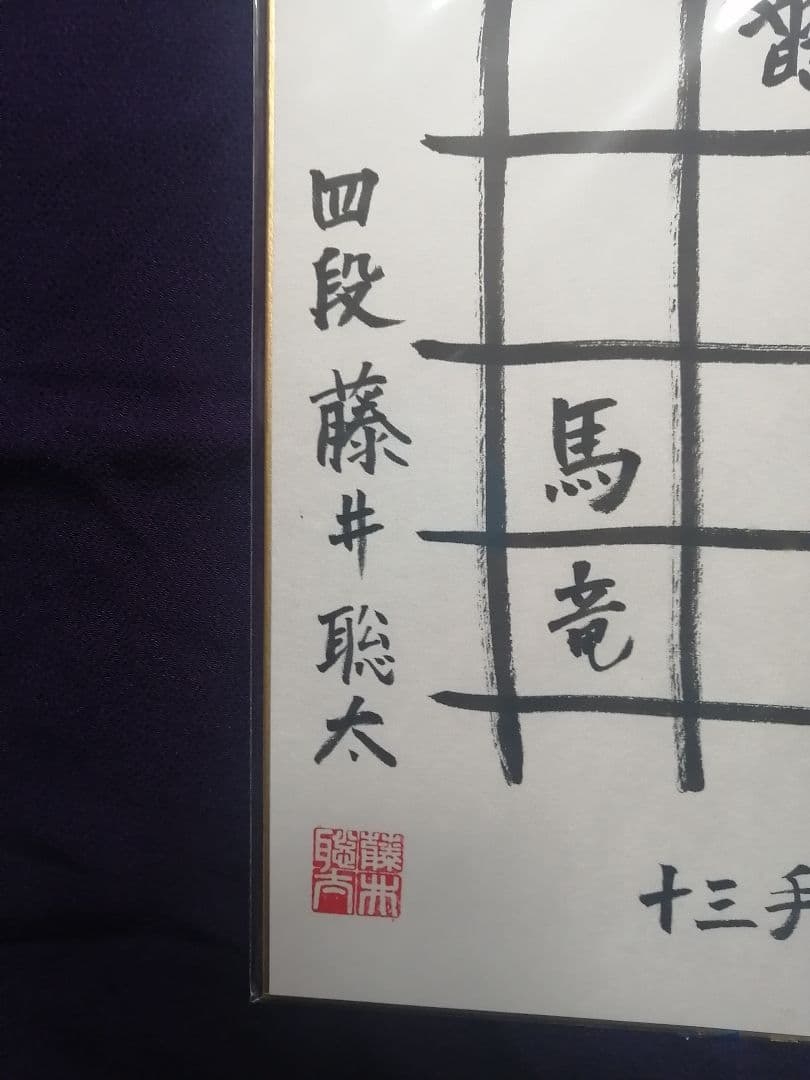 四段 藤井聡太
馬
竜
十三手
藤井
聡太